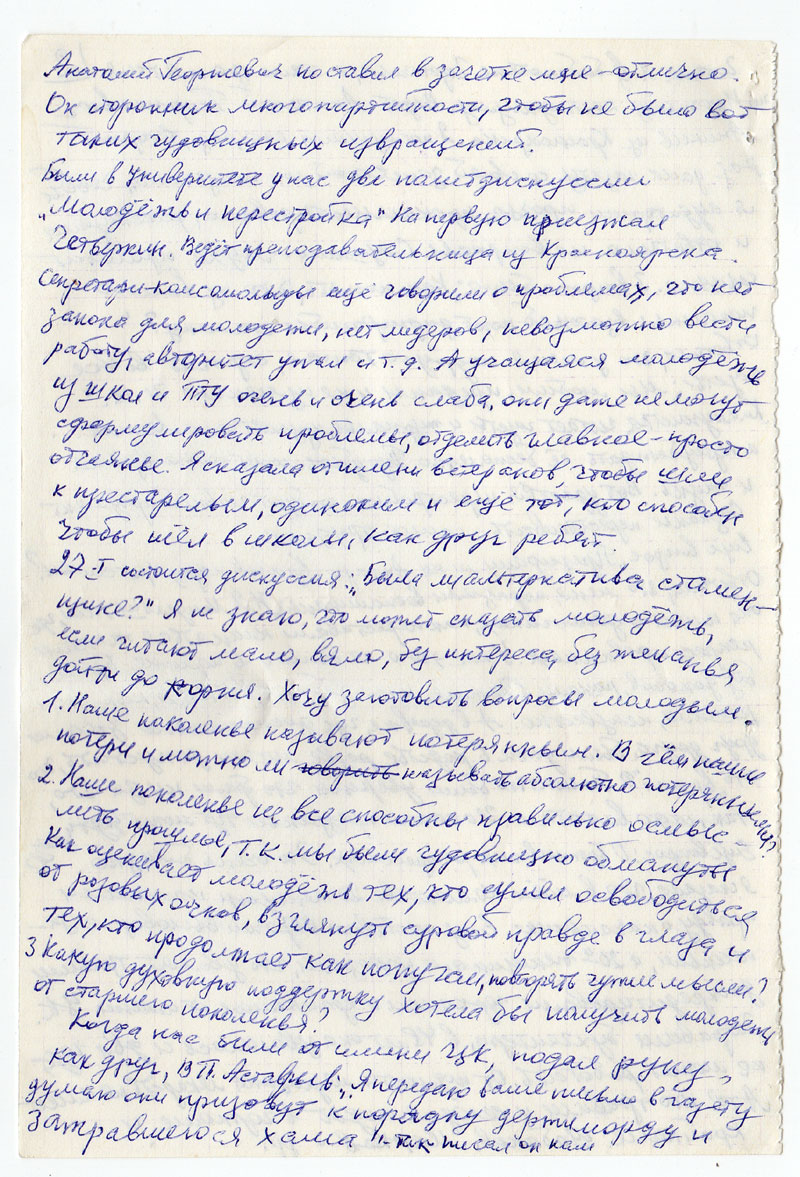 Анатолий Георгиевич поставил в зачетке мне – отлично.
Он сторонник многопартийности, чтобы не было вот
таких чудовищных извращений.
Были в Университете у нас две дискуссии
„Молодёжь и перестройка" На первую приезжал
Четвержин. Ведёт преподавательница из Красноярска.
Секретари-комсомольцы ещё говорили о проблемах, что нет
закона для молодежи, нет лидеров, невозможно вести
работу, авторитет упал и т.д. А учащаяся молодёжь
из школ и ПТУ очень и очень слаба, они даже не могут
сформулировать проблемы, отделить главное – просто
отчаянье. Я сказала от имени ветеранов, чтобы шли
к престарелым, одиноким и ещё тот, кто способен
чтобы шёл в школы, как друг ребят.
27-I состоится дискуссия: „Была ли альтернатива сталин-
щине?" Я не знаю, что может сказать молодёжь,
если читают мало, вяло, без интереса, без желанья
дойти до корня. Хочу заготовить вопросы молодым.
1. Наше поколенье называют потерянным. В чём наши
потери и можно ли говорить называть абсолютно потерянными?
2. Наше поколенье не все способны правильно осмыс-
лить прошлое, т.к. мы были чудовищно обмануты
Как оценивает молодёжь тех, кто сумел освободиться
от розовых очков, взглянуть суровой правде в глаза и
тех, кто продолжает как попугаи, повторять чужие мысли?
3 Какую духовную поддержку хотела бы получить молодежь
от старшего поколенья?
Когда нас били от имени ЦК, подал руку,
как друг, В.П. Астафьев: „Я передаю ваше письмо в газету
думаю они призовут к порядку держиморду и
зажравшегося хама" – так писал он нам